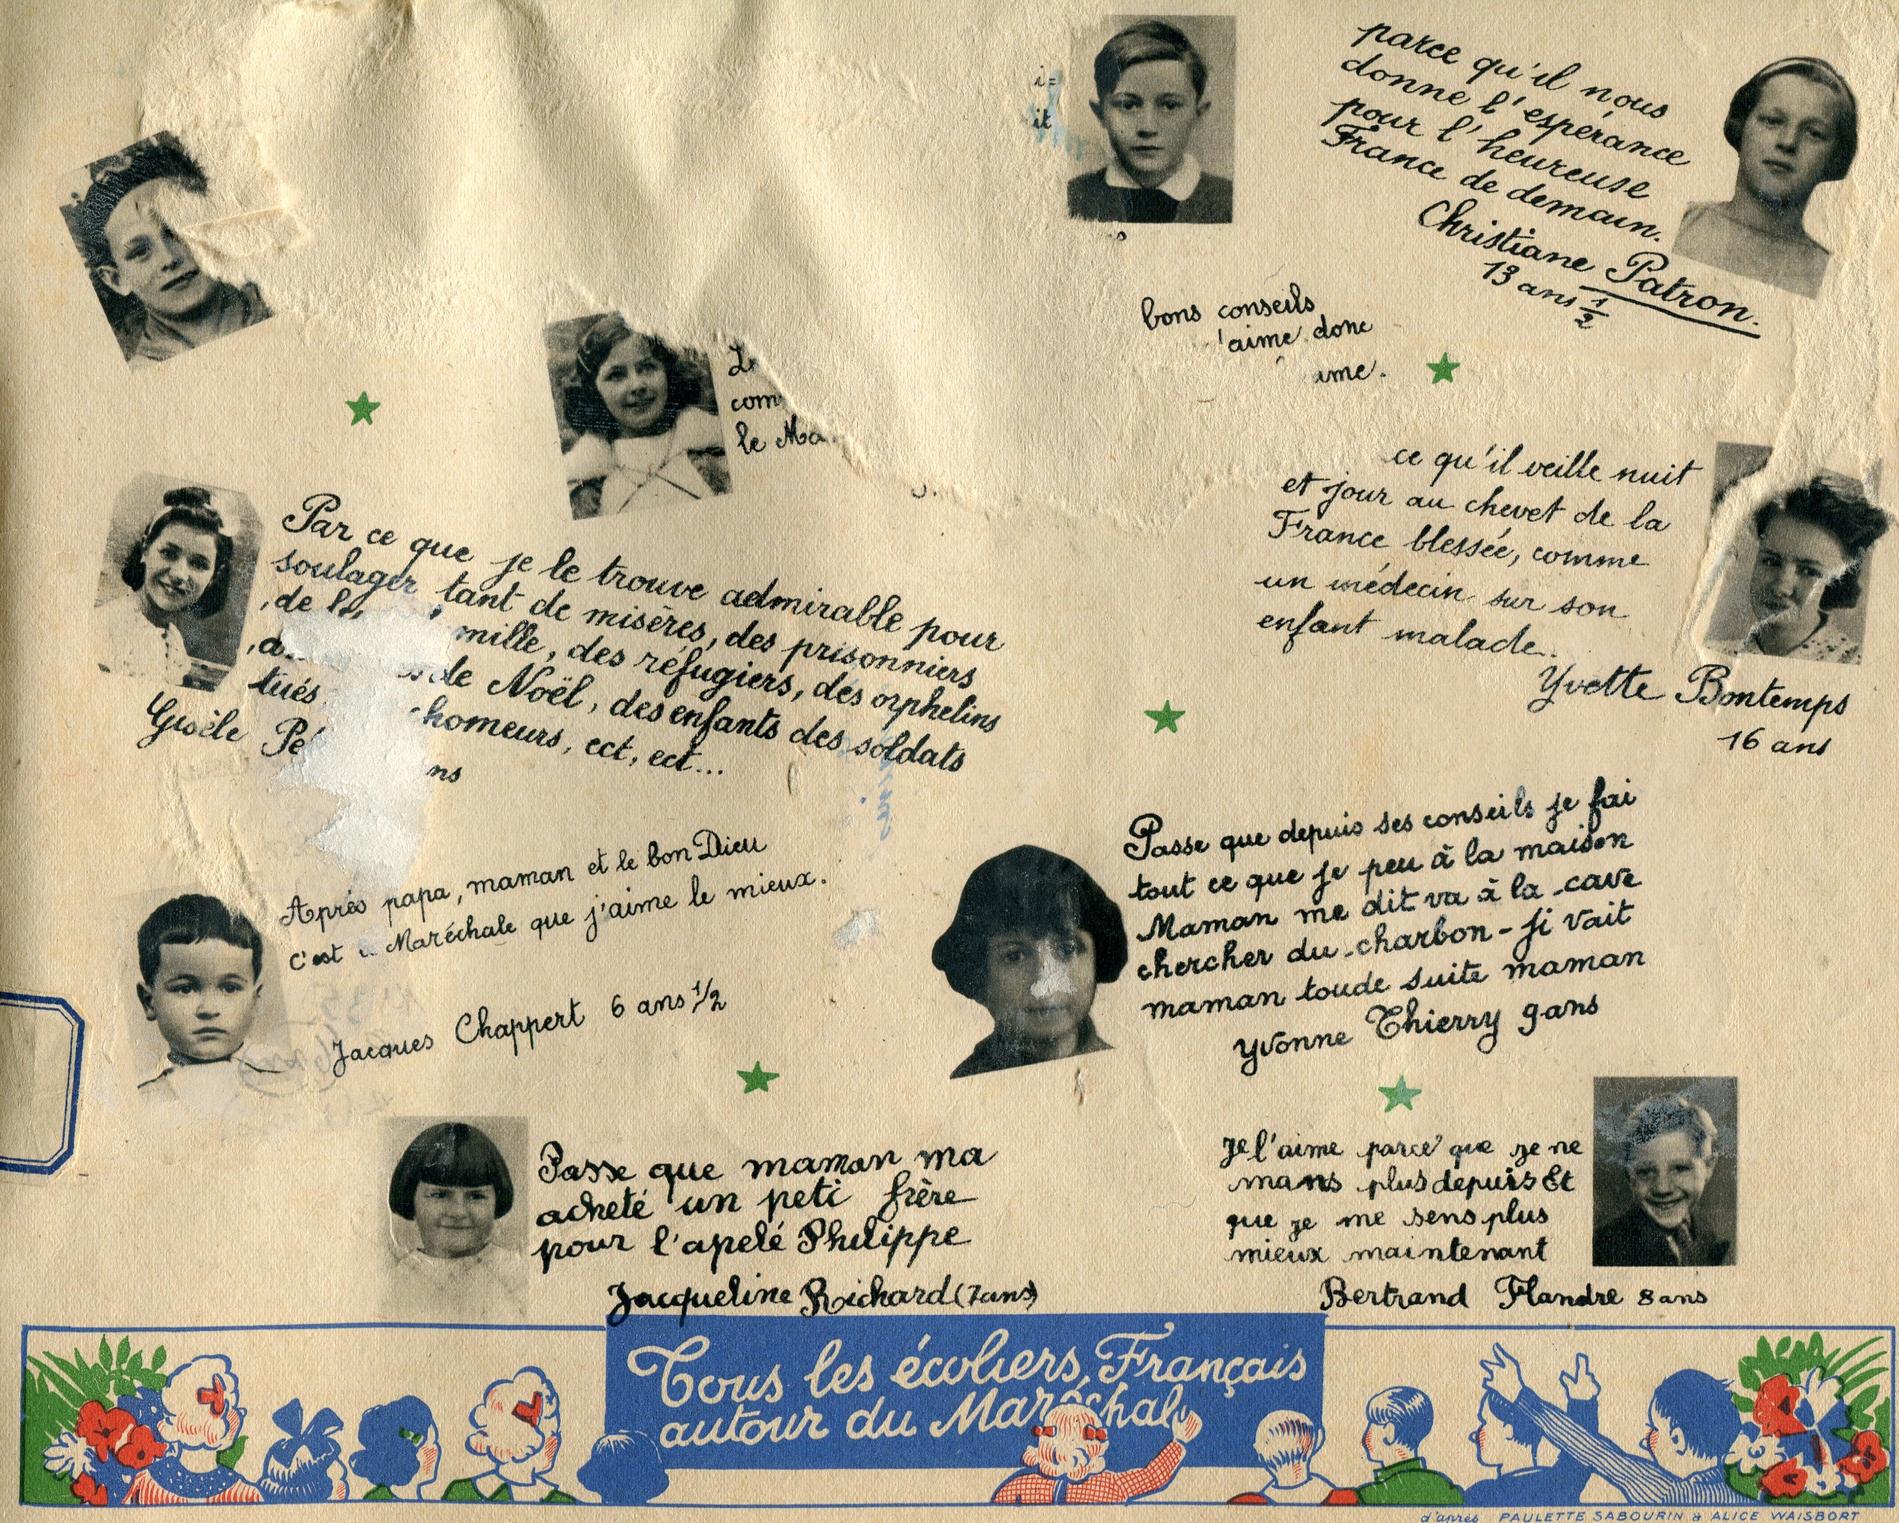 parce qu'il nous
donne l'espérance
pour l'heureuse
France de demain.
Christiane Patron.
13 ans 1/2
bons conseils
'aime donc
com
le Ma
ce qu'il veille nuit
et jour au chevet de la
France blessée, comme
un médecin sur son
enfant malade..
Yvette Bontemps
16 ans
Par ce que je le trouve admirable pour
soulager tant de misères, des prisonniers
, de mille, des réfugiers, des orphelins
de Noël, des enfants des soldats
tués homeurs, ect, ect...
Gisèle Pé
ns
Après papa, maman et le bon Dieu
c'est Maréchale que j'aime le mieux.
Jacques Chappert 6 ans 1/2
Passe que depuis ses conseils je fai
tout ce que je peu à la maison
Maman me dit va à la cave
chercher du charbon - Ji vait
maman toude suite maman
Yvonne Thierry 9 ans
Passe que maman ma
acheté un peti frère
pour l'apelé Philippe
Jacqueline Richard (7ans)
Je l'aime parce que je ne
mans plus depuis Et
que je me sens plus
mieux maintenant
Bertrand Flandre 8 ans
Tous les écoliers, Français
autour du Maréchal
d'après PAULETTE SABOURIN & ALICE WAISBORT